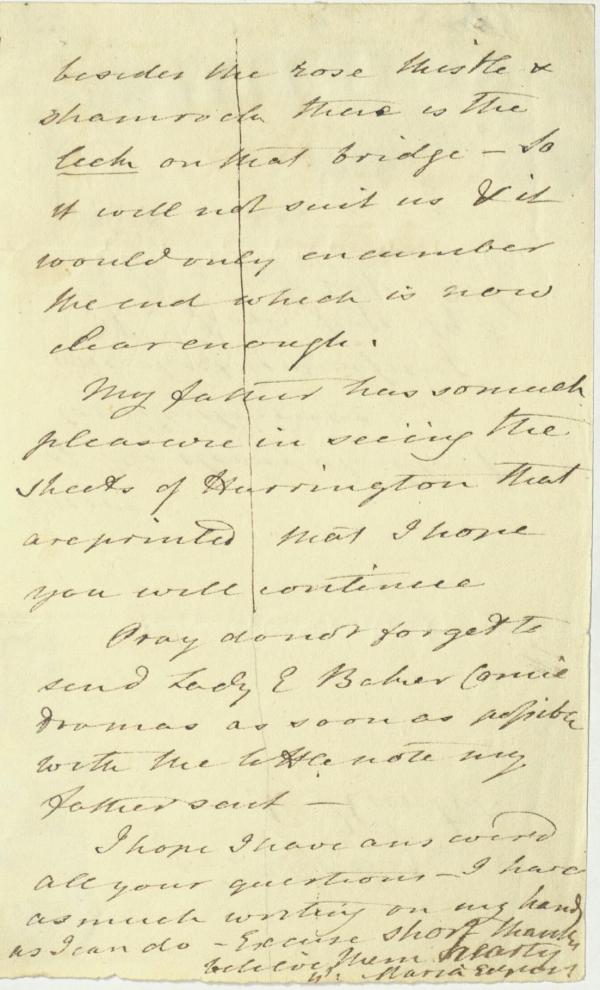 besides the rose thistle &
shamrock there is the
leek on that bridge – So
it will not suit us & it
would only encumber
the end which is now
clear enough.
My father has so much
pleasure in seeing the
sheets of Harrington that
are printed that I hope
you will continue
Pray do not forget to
send Lady E Baker Comic
Dramas as soon as possible
with the little note my
father sent –
I hope I have answered
all your questions – I have
as much writing on my hands
as I can do – Excuse short thanks
believe them hearty
Maria